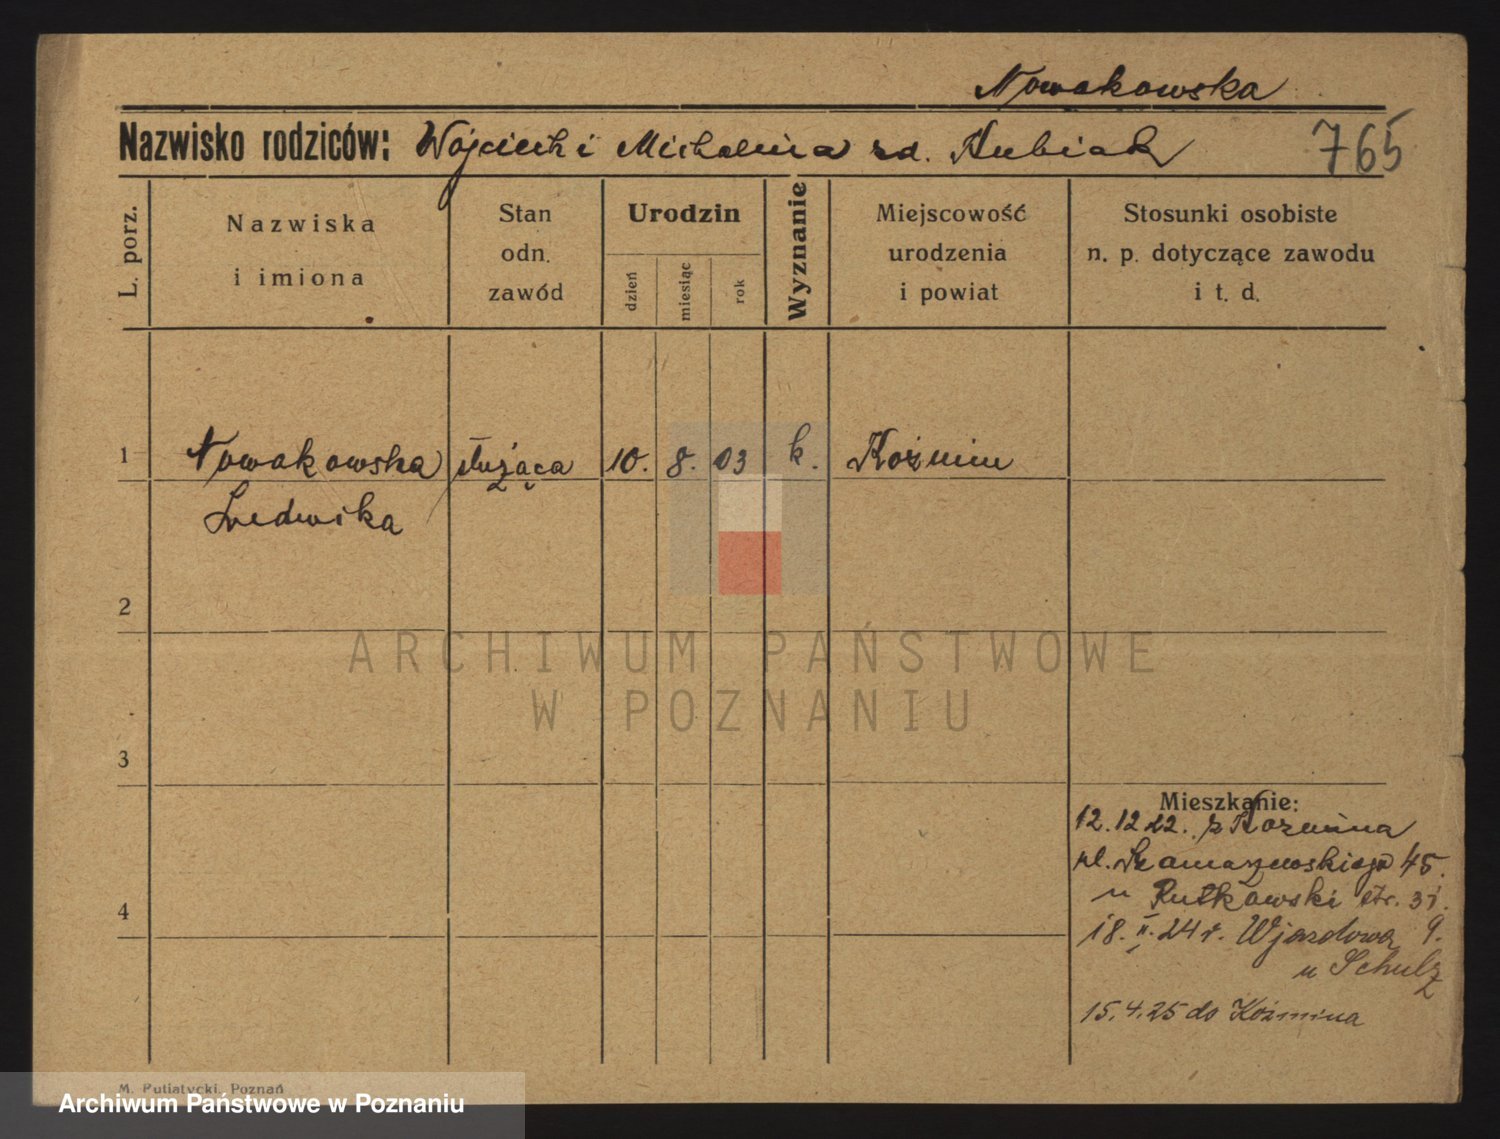 Nowakowska
Nazwisko rodziców: Wojciech i Michalina zd. Kubiak 765
L. porz.
Nazwiska
i imiona
Stan
odn.
zawód
Urodzin
dzień
miesiąc
rok
Wyznanie
Miejscowość
urodzenia
i powiat
Stosunki osobiste
n. p. dotyczące zawodu
i t. d.
1 Nowakowska służąca 10. 8. 03 k. Koźmin
Ludwika
2
3
4
Mieszkanie:
12.12 22. z Kozmina
ul. Szamarzewskiego 45.
u Rutkowski str. 31.
18. II. 24 r. Wjazdowa 9.
u Schulz
15.4.25 do Koźmina
M. Putiatycki, Poznań
ARCHIWUM PAŃSTWOWE
W POZNANIU
Archiwum Państwowe w Poznaniu